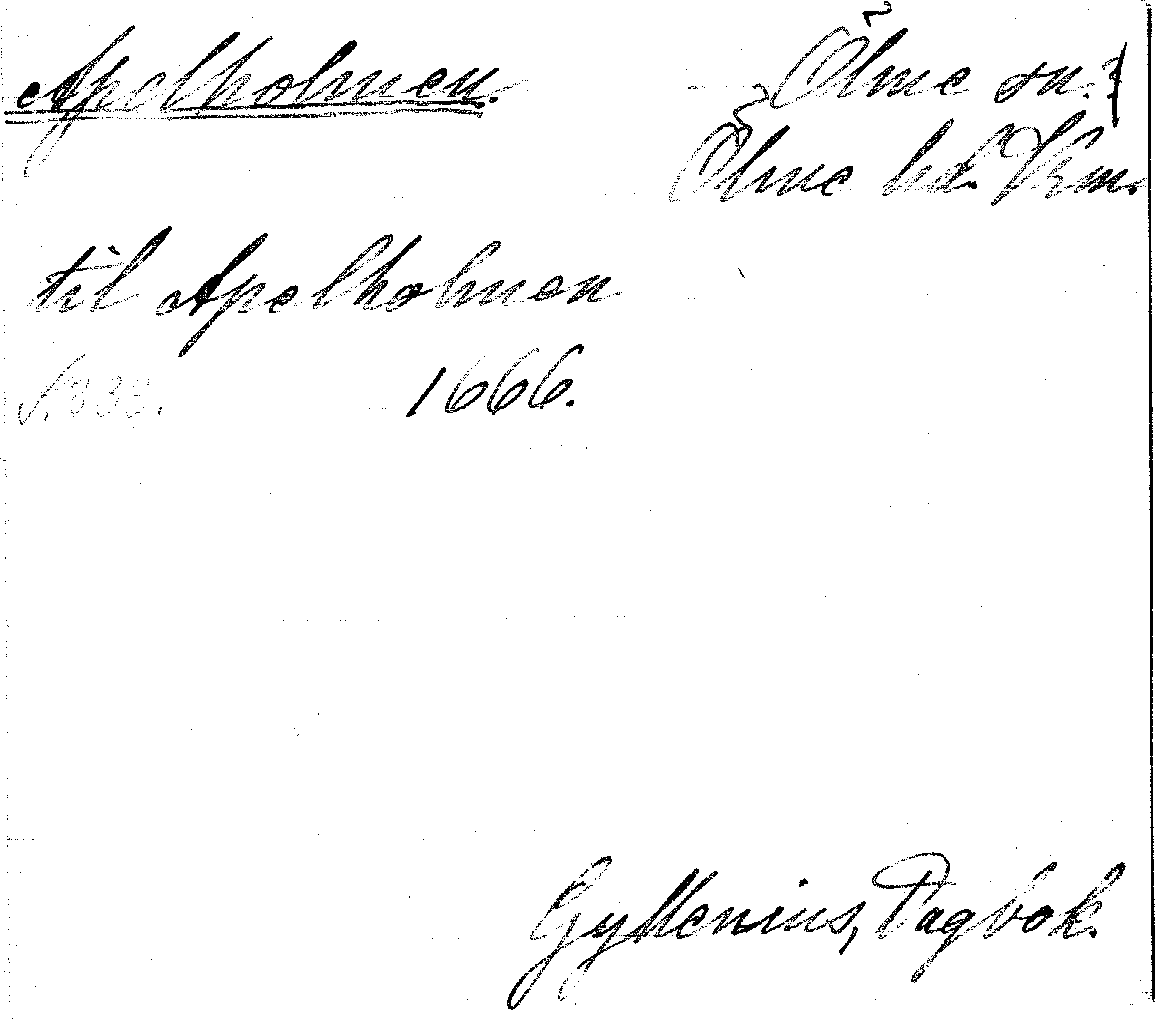 Apelholmen. Ölme sn.
Ölme hd. Vrm.
til Apelholmen
S. 333. 1666.
Gyllenius, Dagbok.